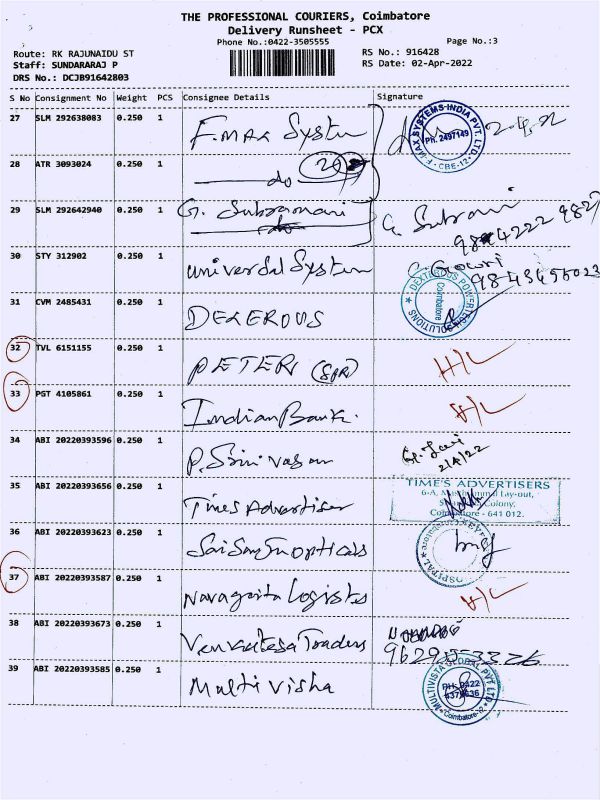 THE PROFESSIONAL COURIERS, Coimbatore
Delivery Runsheet - PCX
Phone No.:0422-3505555
Page No.:3
Route: RK RAJUNAIDU ST
RS No.: 916428
Staff: SUNDARARAJ P
RS Date: 02-Apr-2022
DRS No.: DCJB91642803
S No Consignment No Weight PCS Consignee Details Signature
27 SLM 292638083 0.250 1 F.max System
MAX SYSTEMS-INDIA PVT. LTD. PH. 2497149 CBE-12
28 ATR 3093024 0.250 1 do
29 SLM 292642940 0.250 1 G. Subramani G. Subrani
30 STY 312902 0.250 1 universal System Gowri
31 CVM 2485431 0.250 1 DEXEROUS
DEXTEROUS POWERTEC SOLUTIONS Coimbatore
32 TVL 6151155 0.250 1 PETER (SPR) H/L
33 PGT 4105861 0.250 1 Indian Bank. H/L
34 ABI 20220393596 0.250 1 P. Srinivasan 2/4/22
35 ABI 20220393656 0.250 1 Times Advertiser
TIME'S ADVERTISERS
Lay-out,
Colony,
Coimbatore - 641 012.
36 ABI 20220393623 0.250 1 Opticals
37 ABI 20220393587 0.250 1 Navagaita Logists H/L
38 ABI 20220393673 0.250 1 Venkatesa Traders
39 ABI 20220393585 0.250 1 Multi visha
MULTIVISTA GLOBAL PVT LTD PH: 0422 Coimbatore-12